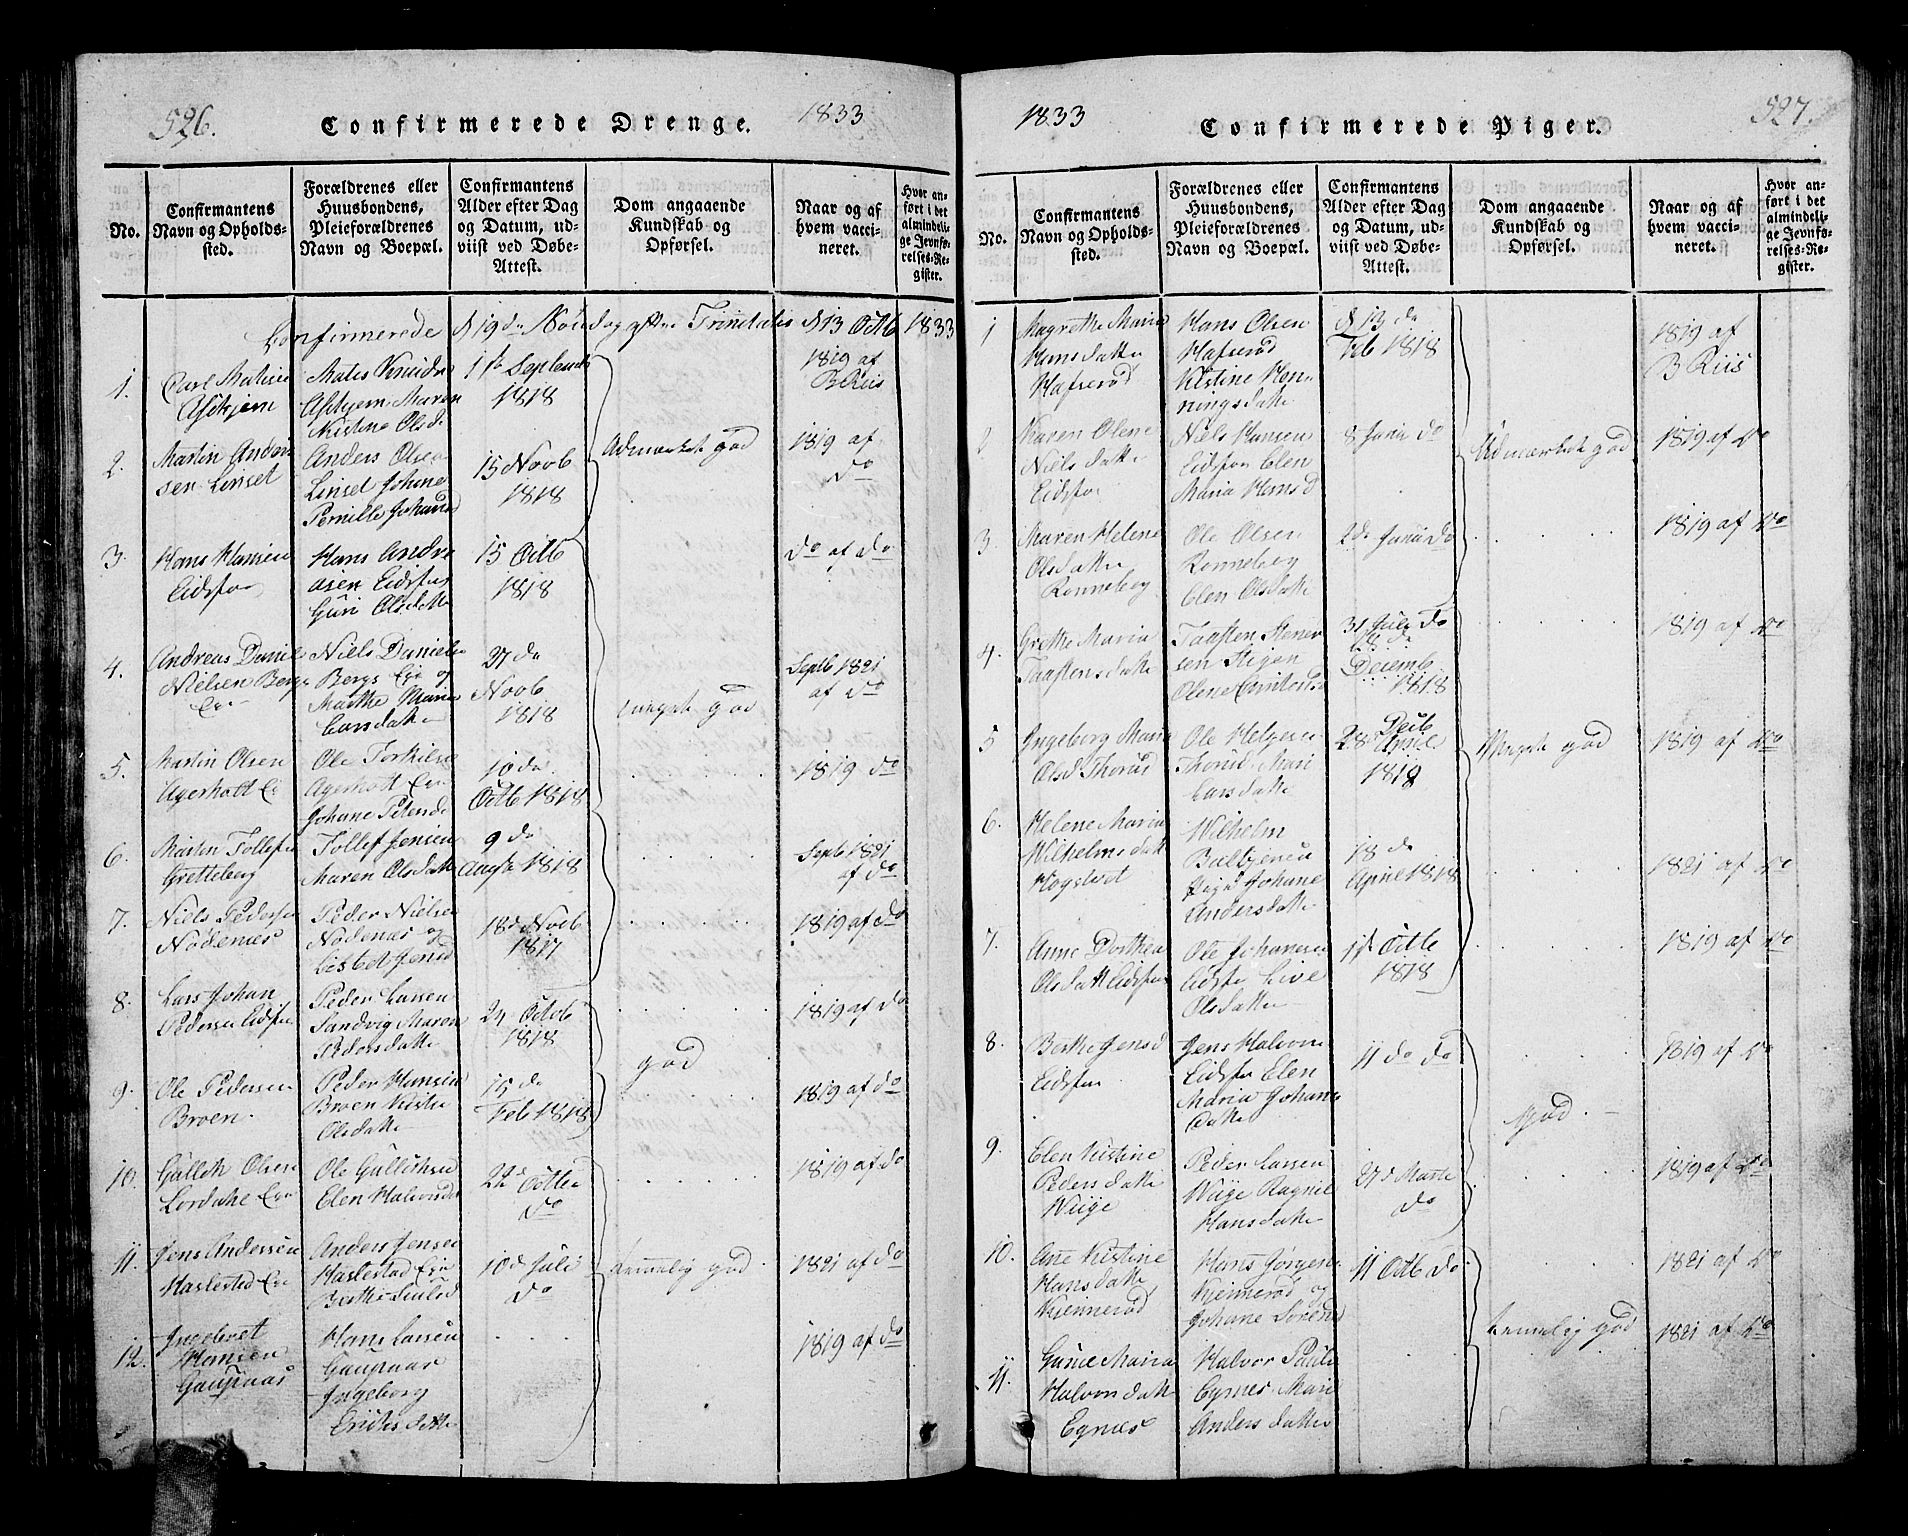 526.
Confirmerede Drenge.
1833
No.
Confirmantens Navn og Opholdssted.
Forældrenes eller Huusbondens, Pleieforældrenes Navn og Boepæl.
Confirmantens Alder efter Dag og Datum, udviist ved Døbe-Attest.
Dom angaaende Kundskab og Opførsel.
Naar og af hvem vaccineret.
Hvor anført i det almindelige Jevnførelses-Register.
Confirmerede d 19de Søndag efter Trinitatis d 13 Octb 1833
1.
Carl Matisen
Askjem
Mates Knuds
Askjem Maren
Kistine Olsd
1ste Septemb
1818
1819 af
B Riis
2.
Martin Anders
sen Linset
Anders Olsen
Linset Johane
Pernille Johansd
15 Novb
1818
Udmærket god
1819 af
do
3.
Hans Hansen
Eidsfos
Hans Andre
asen Eidsfos
Guri Olsdatte
15 Octb
1818
do af do
4.
Andreas Daniel
Nielsen Bergs
Eie
Niels Danielse
Bergs Eie og
Marthe Maria
Larsdatte
27 de
Novb
1818
meget god
Septb 1821
af do
5.
Martin Olsen
Agerholt Ei
Ole Torkilse
Agerholt Eie
Johane Petersd
10 de
Octb 1818
1819 do
6.
Martin Tollefse
Gretteberg
Tollef Jensen
Maren Olsdatte
9 de
Augst 1818
Septb 1821
af do
7.
Niels Pederse
Nödenæs
Peder Nielse
Nödenæs og
Lisbet Jensd
18de Novb
1817
1819 af do
8.
Lars Johan
Pedersen Eidsfos
Peder Larsen
Sandvig Maren
Pedersdatte
24 Octob
1818
god
1819 af do
9.
Ole Pedersen
Broen.
Peder Hansen
Broen Kistie
Olsdatte
15 de
Feb 1818
1819 af do
10.
Gullek Olsen
Lordahl Eie
Ole Gulliksen
Elen Halvorsd
22de Octb
do
1819 af do
11.
Jens Andersen
Haslestad Eie
Anders Jensen
Haslestad Eie
10de Juli
do
temmelig god
1821 af do
12.
Ingebret
Hansen
Gaupnaas
Hans Larsen
Gaupnaas
Ingeborg
Ericksdatte
1819 af do
1833
Confirmerede Piger.
527.
No.
Confirmantens Navn og Opholdssted.
Forældrenes eller Huusbondens, Pleieforældrenes Navn og Boepæl.
Confirmantens Alder efter Dag og Datum, udviist ved Døbe-Attest.
Dom angaaende Kundskab og Opførsel.
Naar og af hvem vaccineret.
Hvor anført i det almindelige Jevnførelses-Register.
1
Magrethe Maria
Hansdatte
Hafserød
Hans Olsen
Hafserød
Kistine Hen
ningsdatte
d 13 de
Feb 1818
1819 af
B Riis
2
Karen Olene
Nielsdatte
Eidsfos
Niels Hansen
Eidsfos Elen
Maria Hansd
8 Janu do
Udmærket god
1819 af do
3.
Maren Helene
Olsdatte
Ronneberg
Ole Olsen
Ronneberg
Elen Olsdatte
2de Janu do
1819 af do
4.
Grethe Maria
Taastensdatte
Taasten Stener
sen Stigen
31 July do
Decemb
1818
1819 af do
5
Ingeborg Maria
Olsd Thorud
Ole Helgese
Thorud Mari
Larsdatte
28 April
1818
Meget god
1819 af do
6.
Helene Maria
Wilhelmsdatt
Hogstvet
Wilhelm
Johane
Andersdatte
18 de
April 1818
1821 af do
7.
Anne Dorthea
Olsdatt Eidsfos
Ole Johannese
Eidsfos Live
Olsdatte
1ste Octb
1818
1819 af do
8.
Berthe Jensd
Eidsfos
Jens Halvors
Eidsfos Elen
Maria Johans
datte
11 do do
God
1819 af do
9.
Elen Kistine
Pedersdatte
Wiige
Peder Larsen
Wiige Ragnil
Hansdatte
27de Marts
do
1819 af do
10.
Ane Kistine
Hansdatte
Kjennerød
Hans Jørgens
Kjennerød og
Johane Sørensd
11 Octb do
1821 af do
11.
Gunie Maria
Halvorsdatt
Egnes
Halvor Pauls
Egnes Mari
Andersdatte
temmelig god
1821 af do